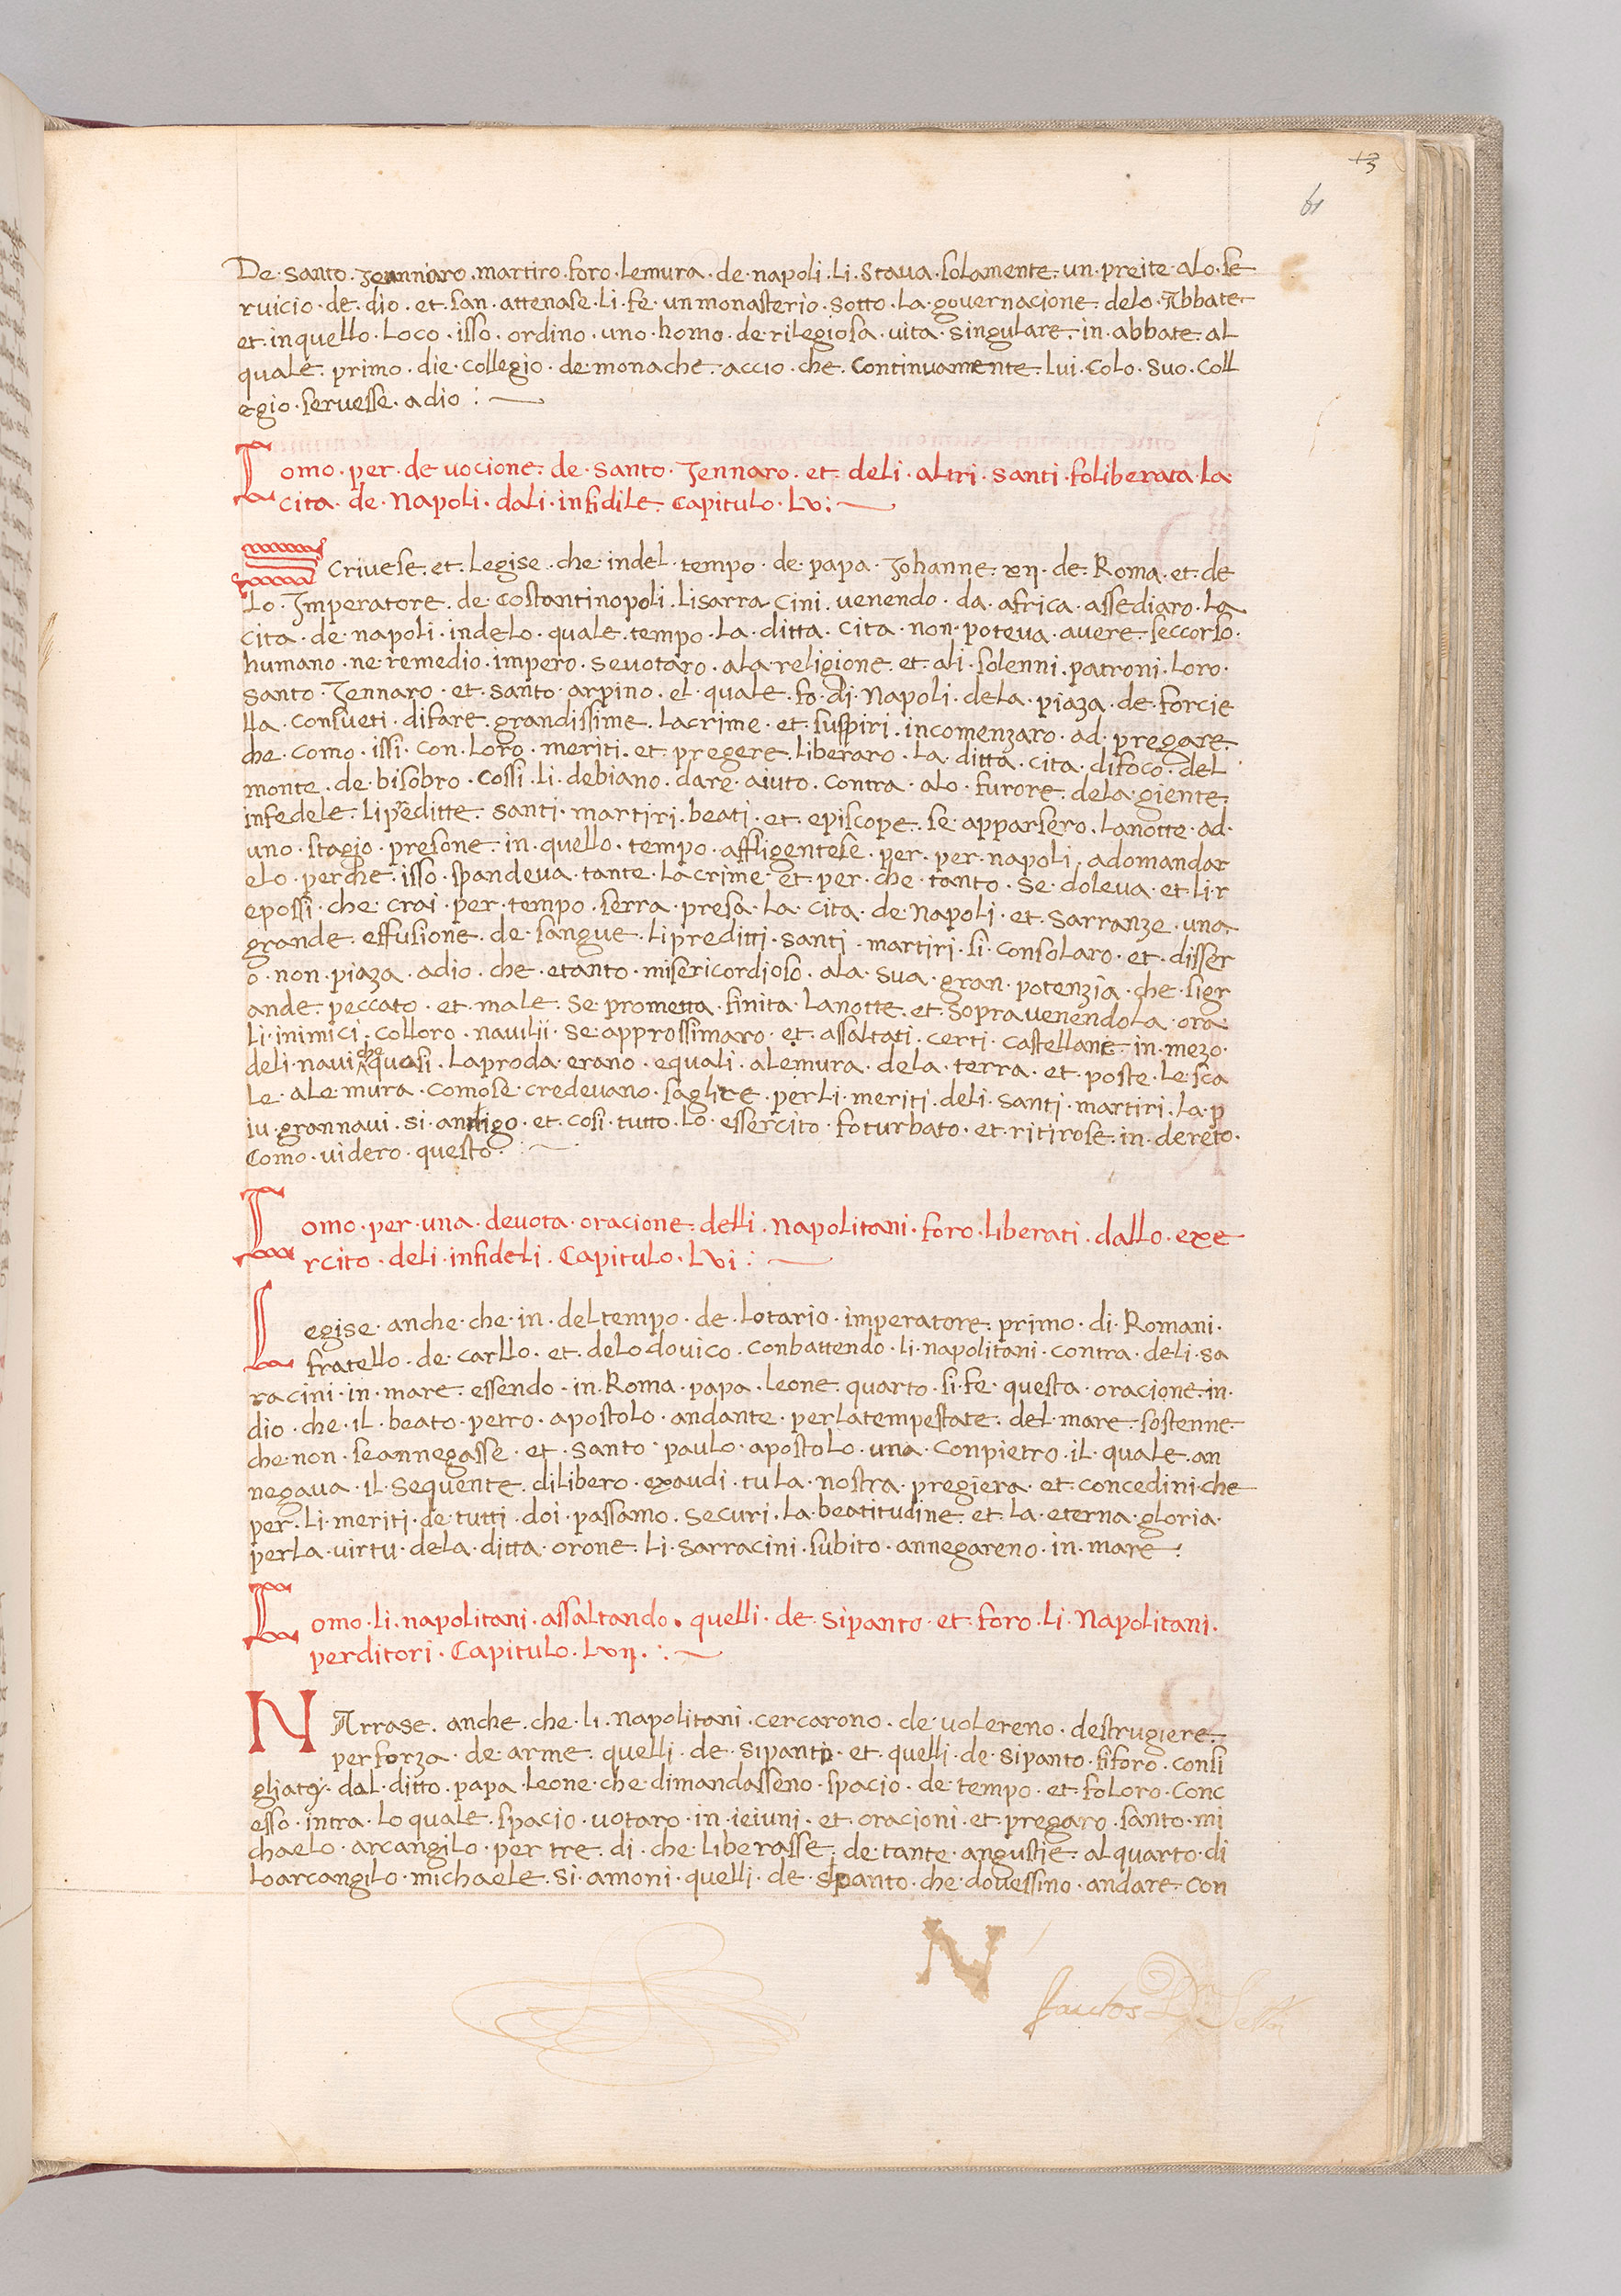 13
61
De·santo·Jennaro·martiro·foro·lemura·de·napoli·li·stava·solamente·un·preite·alo·se
ruicio·de·dio·et·san·attenase·li·fe·un monasterio·sotto·la·governacione·delo·Abbate
et·inquello·loco·isso·ordino·uno·homo·de rilegiosa·uita·singulare·in·abbate·al
quale·primo·die·collegio·de monache·accio·che·continuamente·lui·colo·suo·coll
egio·seruesse·adio:
Como·per·de uocione·de·santo·Jennaro·et·deli·altri·santi·foliberata·la
cita·de·Napoli·dali·infidile·Capitulo·Lv:
Scriuese·et·legise·che·indel·tempo·de·papa·Johanne·xij·de·Roma·et·de
lo·Jmperatore·de·costantinopoli·lisarra cini·uenendo·da·africa·assediaro·la
cita·de·napoli·indelo·quale·tempo·la·ditta·cita·non·poteua·auere·seccorso·
humano·ne·remedio·impero·seuotaro·ala·religione·et·ali·solenni·patroni·loro·
santo·Jennaro·et·santo·arpino·el·quale·fo·di·Napoli·dela·piaza·de·forcie
lla·consueti·difare·grandissime·lacrime·et·suspiri·incomenzaro·ad·pregare
che·como·issi·con·loro·meriti·et·pregere·liberaro·la·ditta·cita·difoco·del
monte·de·bisobro·cossi·li·debiano·dare·aiuto·contra·alo·furore·dela·giente
infedele·li preditte·santi·martiri·beati·et·episcope·se·apparsero·lanotte·ad·
uno·stagio·presone·in·quello·tempo·affligentese·per·per·napoli·adomandar
elo·perche·isso·spandeua·tante·lacrime·et·per·che·tanto·se·doleua·et·li·r
epossi·che·crai·per·tempo·serra·presa·la·cita·de·Napoli·et·sarranze·una
grande·effusione·de·sangue·lipreditti·santi·martiri·si·consolaro·et·disser
o·non·piaza·adio·che·etanto·misericordioso·ala·sua·gran·potenzia·che·sigr
ande·peccato·et·male·se·prometta·finita·lanotte·et·sopra uenendola·ora·
li·inimici·colloro·nauilij·se·approssimaro·et·assaltati·certi·castellane·in·mezo·
deli·naui che quasi·laproda·erano·equali·alemura·dela·terra·et·poste·le·sca
le·ale mura·comose·credeuano·saglire·perli·meriti·deli·santi·martiri·la·p
iu·gran naui·si·andigo·et·cosi·tutto·lo·essercito·foturbato·et·ritirose·in·dereto·
Como·uidero·questo:
Como·per·una·deuota·oracione·delli·Napolitani·foro·liberati·dallo·exe
rcito·deli·infideli·Capitulo·Lvi:
Legise·anche·che·in·deltempo·de·lotario·imperatore·primo·di·Romani·
fratello·de·carllo·et·delodouico·conbattendo·li·napolitani·contra·deli·sa
racini·in·mare·essendo·in·Roma·papa·leone·quarto·si·fe·questa·oracione·in·
dio·che·il·beato·petro·apostolo·andante·perlatempestate·del·mare·sostenne·
che·non·seannegasse·et·santo·paulo·apostolo·una·conpietro·il·quale·an
negaua·il·sequente·dilibero·exaudi·tu la·nostra·pregiera·et·concedini·che
per·li·meriti·de·tutti·doi·passamo·securi·la·beatitudine·et·la·eterna·gloria·
perla·uirtu·dela·ditta·orone·li·sarracini·subito·annegareno·in·mare:
Como·li·napolitani·assaltando·quelli·de·sipanto·et·foro·li·Napolitani·
perditori·Capitulo·Lvij:
NArrase·anche·che·li·Napolitani·cercarono·de·uolereno·destrugiere
per forza·de·arme·quelli·de·sipanto·et·quelli·de·sipanto·siforo·consi
gliato·dal·ditto·papa·leone·che·dimandasseno·spacio·de·tempo·et·foloro·conc
esso·intra·lo quale·spacio·uotaro·in·ieiuni·et·oracioni·et·pregaro·santo·mi
chaelo·arcangilo·per tre·di·che·liberasse·de·tante·angustie·al quarto·di
loarcangilo·michaele·si·amoni·quelli·de·sipanto·che·douessino·andare·con
N